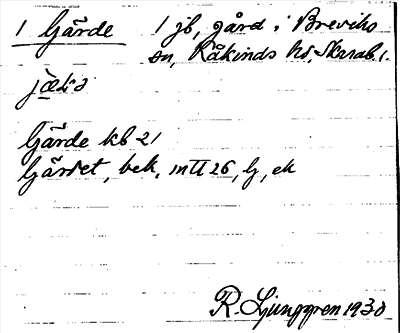 1 Gärde 1 jb, gård i Breviks
sn, Kåkinds hd, Skarab. l.
Gärde kb 21
Gärdet, bek. mtl 26, G, ek
R. Ljunggren 1930